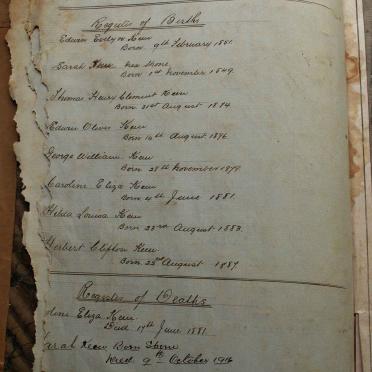 Register of Births
Edwin Evelyn Keen
Born 9th February 1851.
Sarah Keen nee Shone
Born 1st November 1849.
Thomas Henry Clement Keen
Born 21st August 1874.
Edwin Oliver Keen
Born 16th August 1876.
George William Keen
Born 28th November 1879.
Caroline Eliza Keen
Born 4th June 1881.
Hilda Louisa Keen
Born 23rd August 1883.
Herbert Clifton Keen
Born 25th August 1887.
Register of Deaths
oline Eliza Keen
Died 17th June 1881.
arah Keen Born Shone
Died 9th October 1916